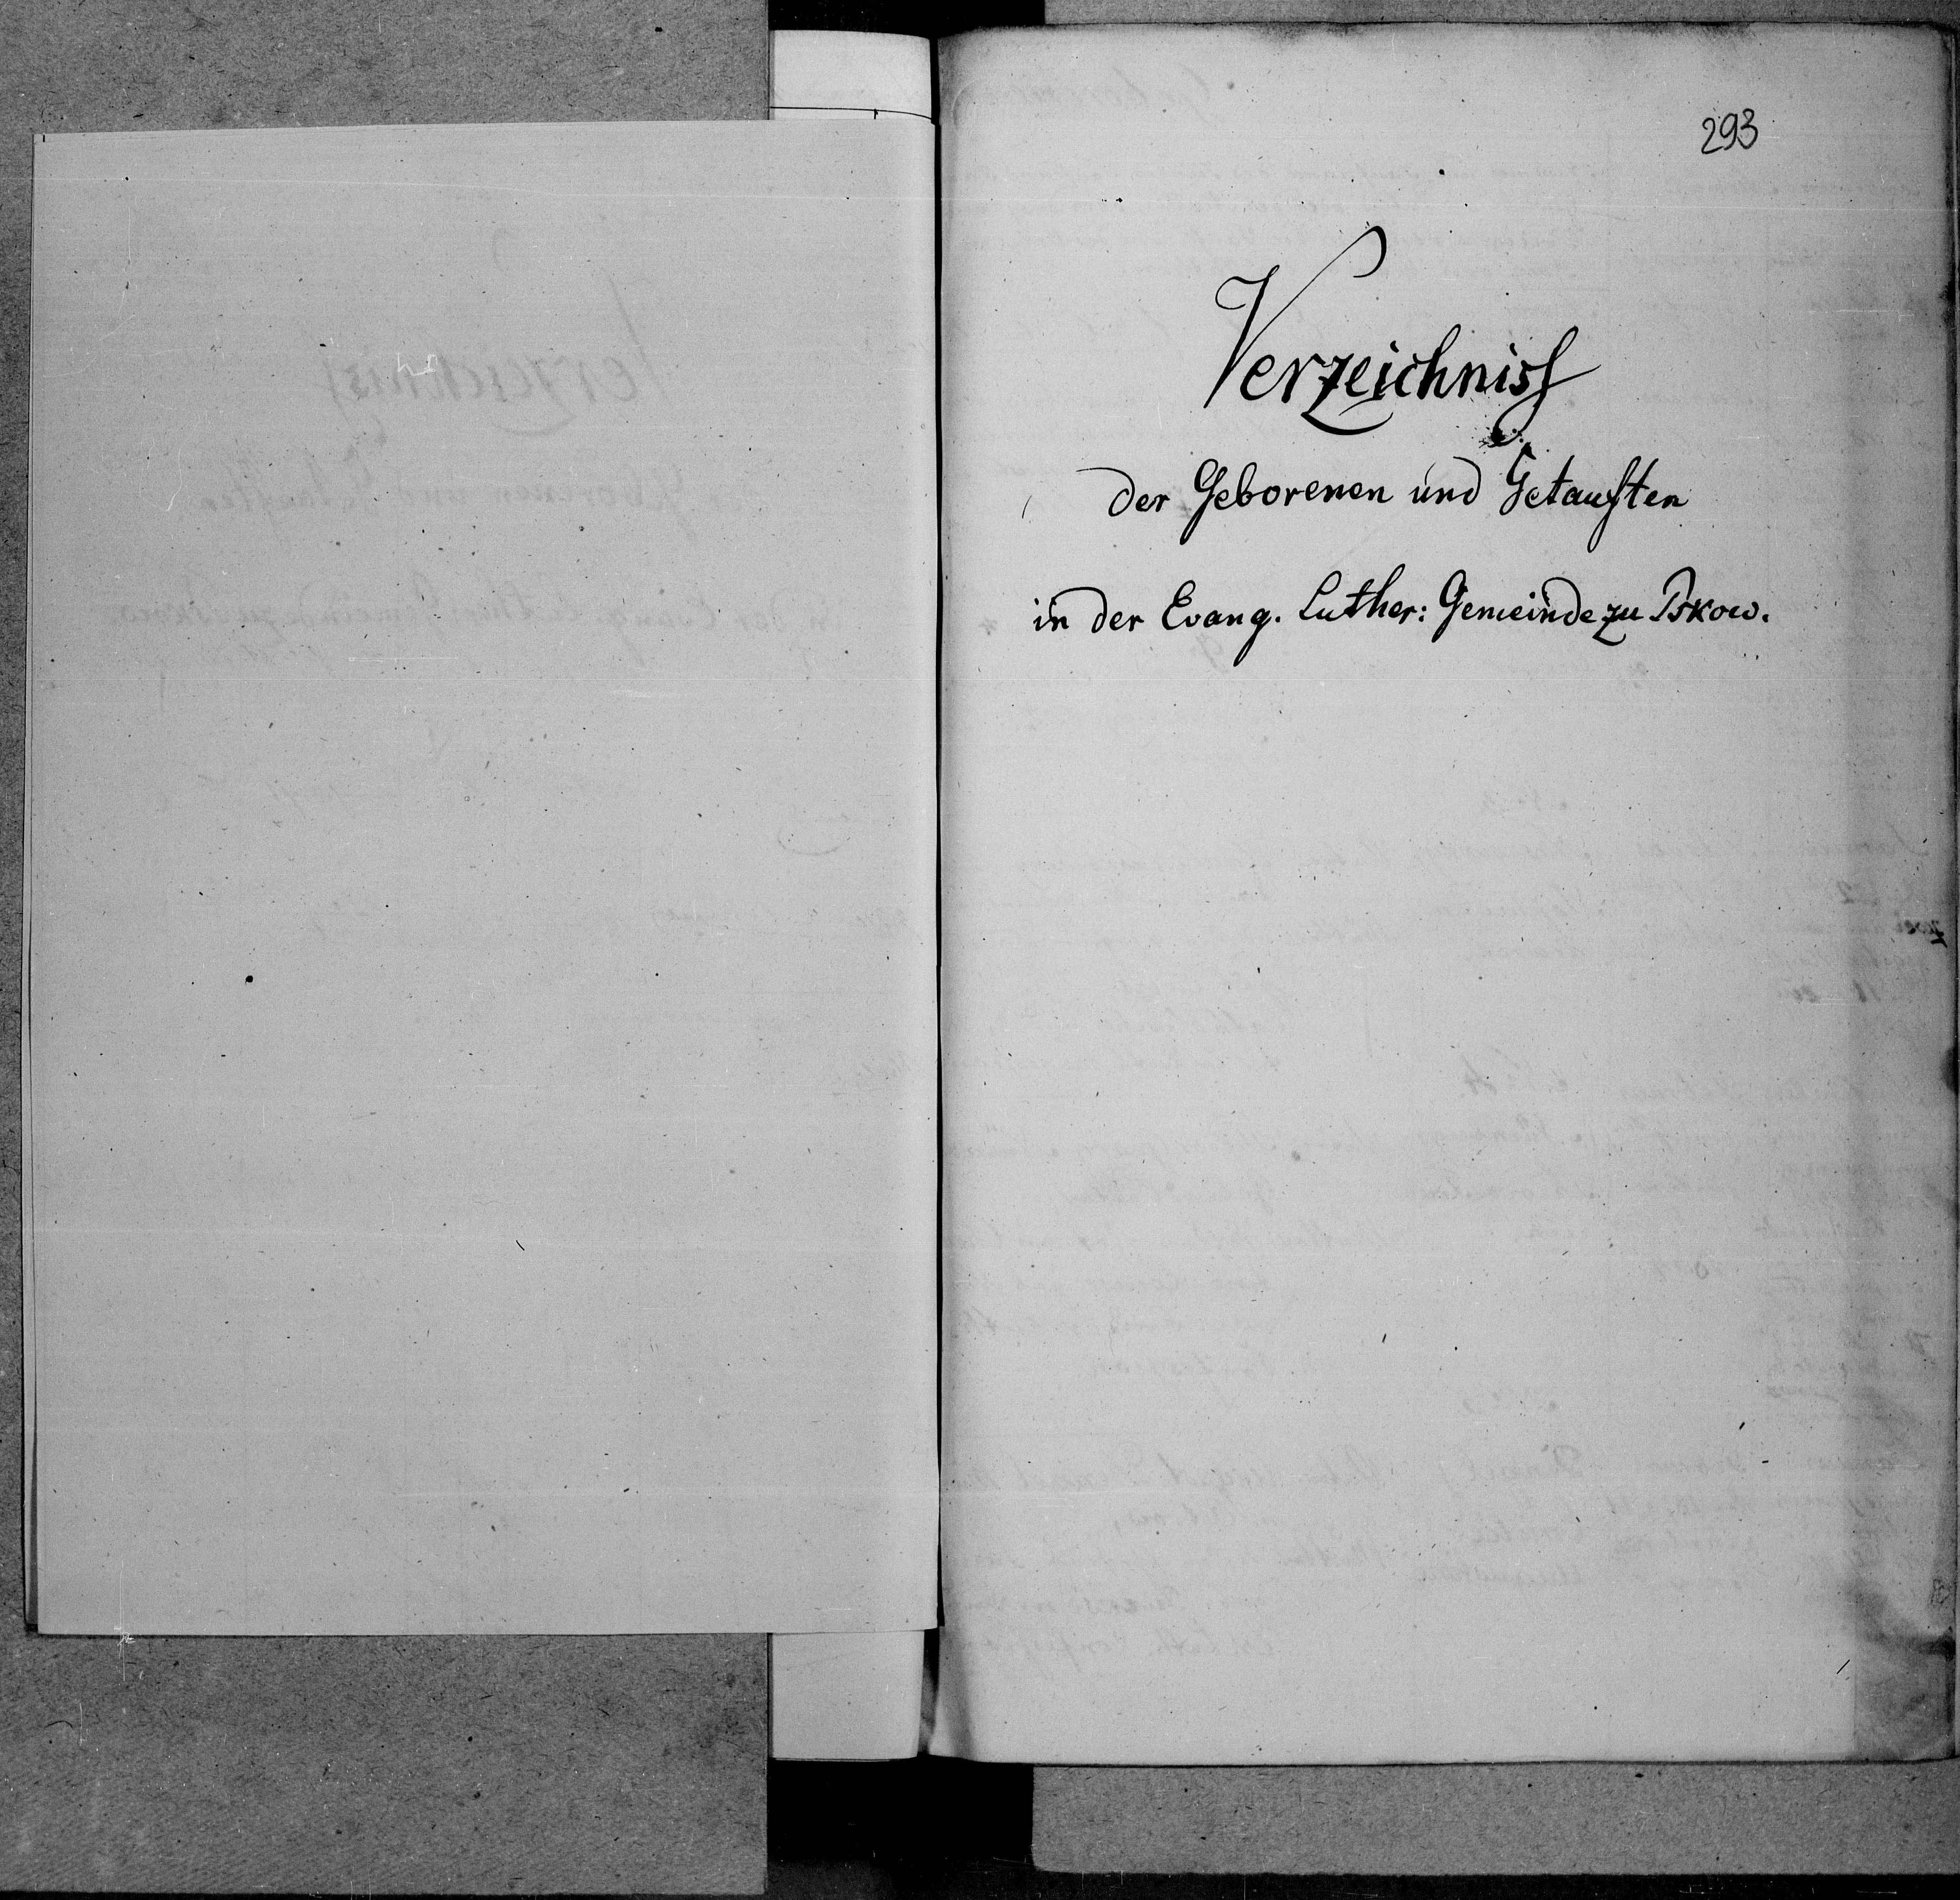 293
Verzeichniss
der Geborenen und Getauften
in der Evang. Luther: Gemeinde zu Pskow.